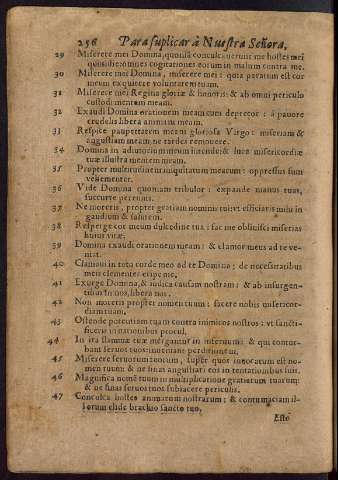 256 Para suplicar à Nuestra Señora,
29 Miserere mei Domina, quonià conculcauerunt me hostes mei
quotidie: omnes cogitationes eorum in malum contra me.
30 Miserere mei Domina, miserere mei: quia paratum est cor
meum exquirere voluntatem tuam.
31 Miserere mei Regina gloriæ & honoris: & ab omni periculo
custodi mentem meam.
32 Exaudi Domina orationem meam cum deprecor: à pauore
crudelis libera animam meam.
33 Respice paupertatem meam gloriosa Virgo: miseriam &
augustiam meam ne tardes remouere.
34 Domina in adiutorium meum intende: & luce misericordiæ
tuæ illustra mentem meam.
35 Propter multitudinem iniquitatum mearum: oppressus sum
vehementer.
36 Vide Domina quoniam tribulor: expande manus tuas,
succurre pereunti.
37 Ne moreris, propter gratiam nominis tui: vt efficiaris mihi in
gaudium & salutem.
38 Resperge cor meum dulcedine tua: fac me obliuisci miserias
huius vitæ.
39 Domina exaudi orationem meam: & clamor meus ad te ve-
niat.
40 Clamaui in toto corde meo ad te Domina: de necessitatibus
meis clementer eripe me.
41 Exurge Domina, & iudica causam nostram: & ab insurgen-
tibus in nos, libera nos.
42 Non moreris propter nomen tuum: facere nobis misericor-
diam tuam.
43 Ostende potentiam tuam contra inimicos nostros: vt sancti-
ficeris in nationibus procul.
44 In ira flammæ tuæ mergantur in infernum: & qui contur-
bant seruos tuos: inueniant perditionem.
45 Miserere seruorum tuorum, super quos inuocatum est no-
men tuum: & ne sinas angustiari eos in tentationibus suis.
46 Magnifica nomē tuum in multiplicatione gratiarum tuarum:
& ne sinas seruos tuos subiacere periculis.
47 Conculca hostes animarum nostrarum: & contumaciam il-
lorum elide brachio sancto tuo,
Esto